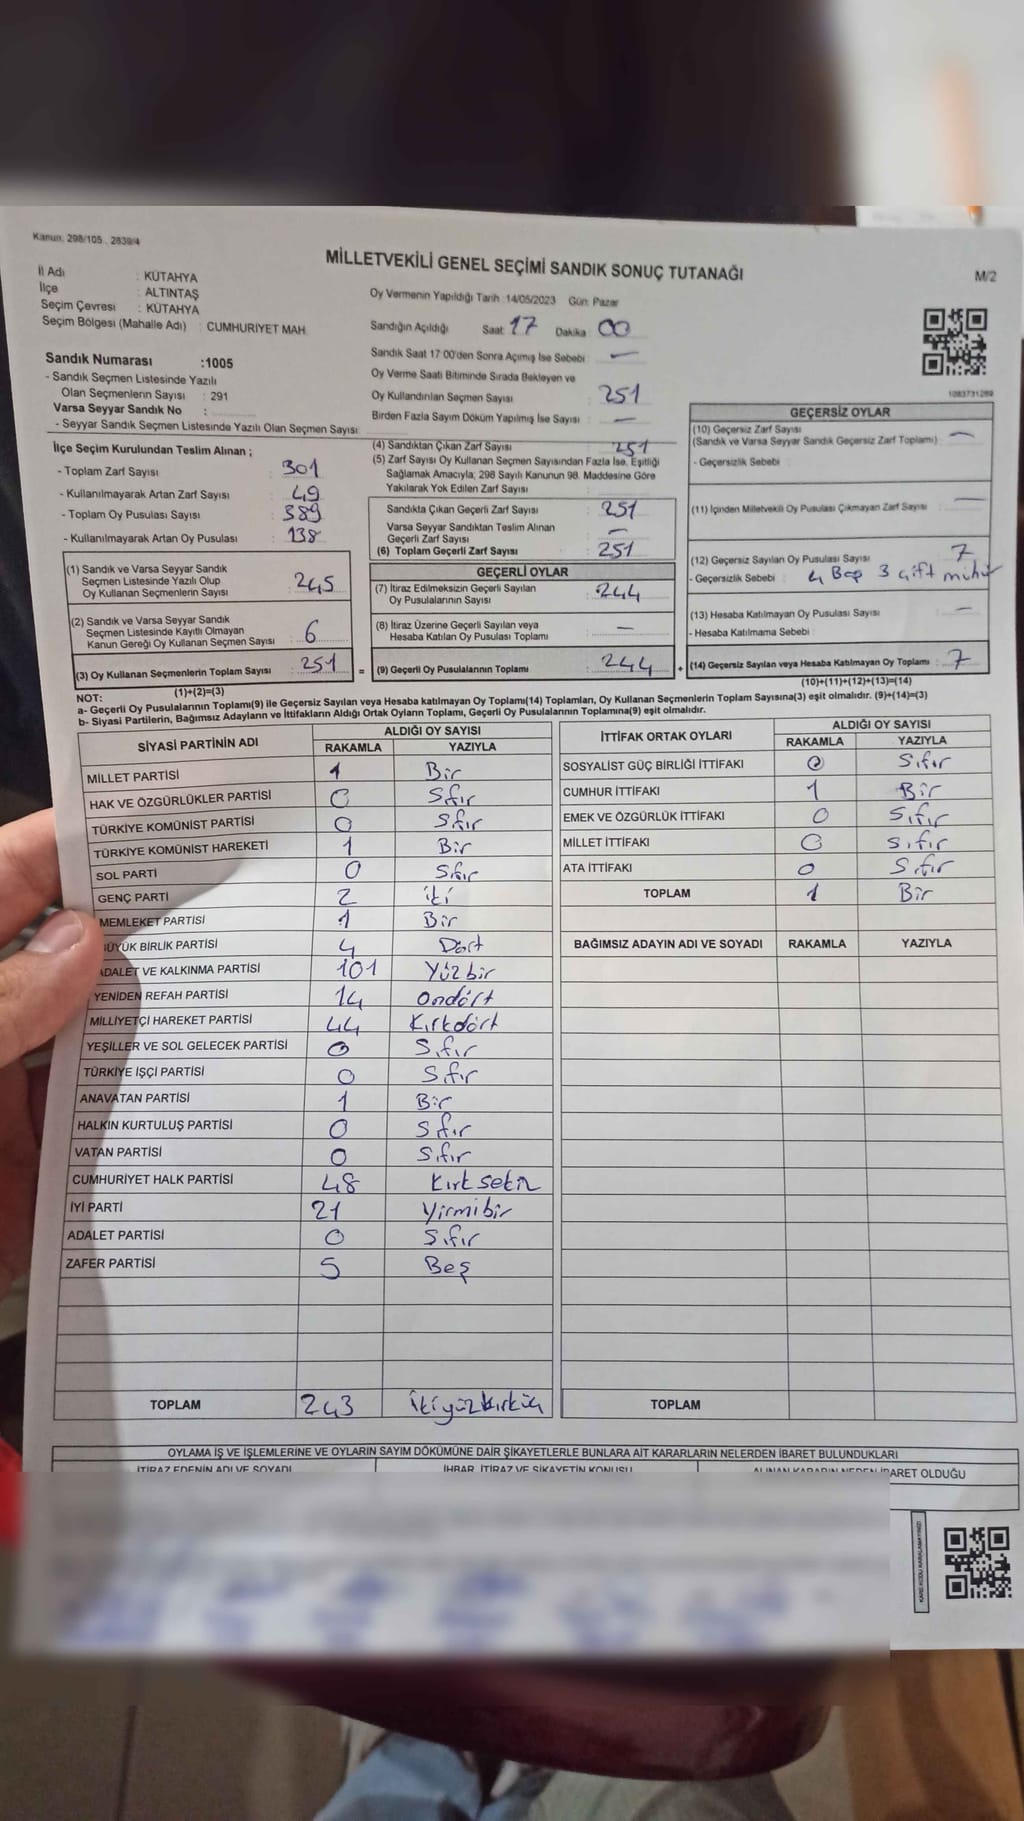 Kanun: 298/105, 2839/4
MİLLETVEKİLİ GENEL SEÇİMİ SANDIK SONUÇ TUTANAĞI
M/2
İl Adı : KÜTAHYA
İlçe : ALTINTAŞ
Seçim Çevresi : KÜTAHYA
Seçim Bölgesi (Mahalle Adı) : CUMHURİYET MAH.
Oy Vermenin Yapıldığı Tarih :14/05/2023 Gün: Pazar
Sandığın Açıldığı Saat: 17 Dakika: 00
Sandık Saat 17:00'den Sonra Açılmış İse Sebebi : —
Oy Verme Saati Bitiminde Sırada Bekleyen ve
Oy Kullandırılan Seçmen Sayısı : 251
Birden Fazla Sayım Döküm Yapılmış İse Sayısı : —
1083731269
Sandık Numarası :1005
- Sandık Seçmen Listesinde Yazılı
Olan Seçmenlerin Sayısı : 291
Varsa Seyyar Sandık No :
- Seyyar Sandık Seçmen Listesinde Yazılı Olan Seçmen Sayısı:
İlçe Seçim Kurulundan Teslim Alınan ;
- Toplam Zarf Sayısı : 301
- Kullanılmayarak Artan Zarf Sayısı : 49
- Toplam Oy Pusulası Sayısı : 389
- Kullanılmayarak Artan Oy Pusulası : 138
(1) Sandık ve Varsa Seyyar Sandık
Seçmen Listesinde Yazılı Olup
Oy Kullanan Seçmenlerin Sayısı : 245
(2) Sandık ve Varsa Seyyar Sandık
Seçmen Listesinde Kayıtlı Olmayan
Kanun Gereği Oy Kullanan Seçmen Sayısı : 6
(3) Oy Kullanan Seçmenlerin Toplam Sayısı : 251
(1)+(2)=(3)
(4) Sandıktan Çıkan Zarf Sayısı : 251
(5) Zarf Sayısı Oy Kullanan Seçmen Sayısından Fazla İse, Eşitliği
Sağlamak Amacıyla, 298 Sayılı Kanunun 98. Maddesine Göre
Yakılarak Yok Edilen Zarf Sayısı :
Sandıkta Çıkan Geçerli Zarf Sayısı : 251
Varsa Seyyar Sandıktan Teslim Alınan
Geçerli Zarf Sayısı : —
(6) Toplam Geçerli Zarf Sayısı : 251
GEÇERLİ OYLAR
(7) İtiraz Edilmeksizin Geçerli Sayılan
Oy Pusulalarının Sayısı : 244
(8) İtiraz Üzerine Geçerli Sayılan veya
Hesaba Katılan Oy Pusulası Toplamı : —
= (9) Geçerli Oy Pusulalarının Toplamı : 244 +
GEÇERSİZ OYLAR
(10) Geçersiz Zarf Sayısı
(Sandık ve Varsa Seyyar Sandık Geçersiz Zarf Toplamı) : —
- Geçersizlik Sebebi :
(11) İçinden Milletvekili Oy Pusulası Çıkmayan Zarf Sayısı : —
(12) Geçersiz Sayılan Oy Pusulası Sayısı : 7
- Geçersizlik Sebebi : 4 Boş 3 çift mühür
(13) Hesaba Katılmayan Oy Pusulası Sayısı : —
- Hesaba Katılmama Sebebi :
(14) Geçersiz Sayılan veya Hesaba Katılmayan Oy Toplamı : 7
(10)+(11)+(12)+(13)=(14)
NOT:
a- Geçerli Oy Pusulalarının Toplamı(9) ile Geçersiz Sayılan veya Hesaba katılmayan Oy Toplamı(14) Toplamları, Oy Kullanan Seçmenlerin Toplam Sayısına(3) eşit olmalıdır. (9)+(14)=(3)
b- Siyasi Partilerin, Bağımsız Adayların ve İttifakların Aldığı Ortak Oyların Toplamı, Geçerli Oy Pusulalarının Toplamına(9) eşit olmalıdır.
SİYASİ PARTİNİN ADI ALDIĞI OY SAYISI
RAKAMLA YAZIYLA
MİLLET PARTİSİ 1 Bir
HAK VE ÖZGÜRLÜKLER PARTİSİ 0 Sıfır
TÜRKİYE KOMÜNİST PARTİSİ 0 Sıfır
TÜRKİYE KOMÜNİST HAREKETİ 1 Bir
SOL PARTİ 0 Sıfır
GENÇ PARTİ 2 iki
MEMLEKET PARTİSİ 1 Bir
BÜYÜK BİRLİK PARTİSİ 4 Dört
ADALET VE KALKINMA PARTİSİ 101 Yüzbir
YENİDEN REFAH PARTİSİ 14 ondört
MİLLİYETÇİ HAREKET PARTİSİ 44 Kırkdört
YEŞİLLER VE SOL GELECEK PARTİSİ 0 Sıfır
TÜRKİYE İŞÇİ PARTİSİ 0 Sıfır
ANAVATAN PARTİSİ 1 Bir
HALKIN KURTULUŞ PARTİSİ 0 Sıfır
VATAN PARTİSİ 0 Sıfır
CUMHURİYET HALK PARTİSİ 48 Kırksekiz
İYİ PARTİ 21 Yirmibir
ADALET PARTİSİ 0 Sıfır
ZAFER PARTİSİ 5 Beş
TOPLAM 243 İkiyüzkırküç
İTTİFAK ORTAK OYLARI ALDIĞI OY SAYISI
RAKAMLA YAZIYLA
SOSYALİST GÜÇ BİRLİĞİ İTTİFAKI 0 Sıfır
CUMHUR İTTİFAKI 1 Bir
EMEK VE ÖZGÜRLÜK İTTİFAKI 0 Sıfır
MİLLET İTTİFAKI 0 Sıfır
ATA İTTİFAKI 0 Sıfır
TOPLAM 1 Bir
BAĞIMSIZ ADAYIN ADI VE SOYADI RAKAMLA YAZIYLA
TOPLAM
OYLAMA İŞ VE İŞLEMLERİNE VE OYLARIN SAYIM DÖKÜMÜNE DAİR ŞİKAYETLERLE BUNLARA AİT KARARLARIN NELERDEN İBARET BULUNDUKLARI
İTİRAZ EDENİN ADI VE SOYADI İHBAR, İTİRAZ VE ŞİKAYETİN KONUSU ALINAN KARARIN NEDEN İBARET OLDUĞU